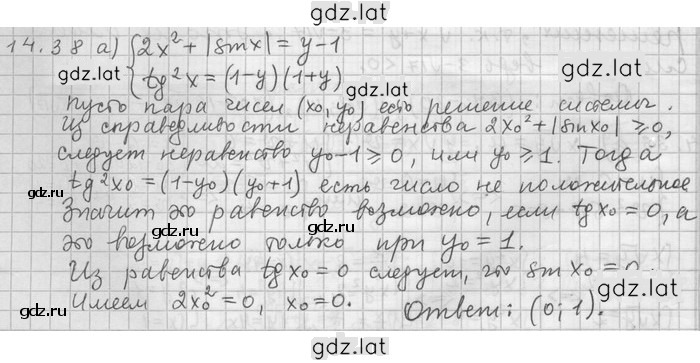 gdz.lat
14.38 а) {2x² + |sinx| = y-1
gdz.lat
tg²x = (1-y)(1+y)
gdz.lat
пусть пара чисел (x₀, y₀) есть решение системы.
Из справедливости неравенства 2x₀² + |sinx₀| ⩾ 0,
gdz.lat
следует неравенство y₀-1 ⩾ 0, или y₀ ⩾ 1. Тогда
gdz.lat
tg²x₀ = (1-y₀)(y₀+1) есть число не положительное
gdz.lat
Значит это равенство возможно, если tgx₀ = 0, а
это возможно только при y₀ = 1.
gdz.lat
Из равенства tgx₀ = 0 следует, что sinx₀ = 0.
gdz.lat
Имеем 2x₀² = 0, x₀ = 0. Ответ: (0; 1).
gdz.lat